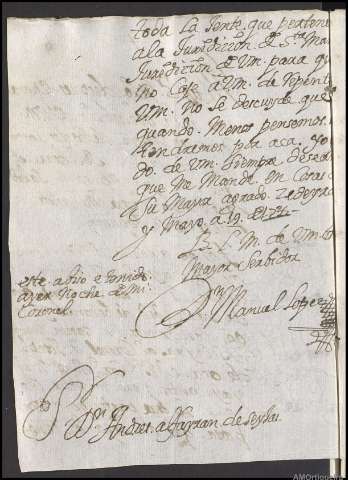 toda La Jente que pertene
a la Juredicion de Sta Mar
Juredicion de Vm. para qu
no Coje a Vm. de repente
Vm. no Se descuyde que
quando Menos pensemos
tendremos por aca. Yo
do. de Vm. Siempre desea
que Me Mande en Cosas
Su Mayor agrado
y Mayo, a 19 de
B. L. M. de Vm.
Mayor Serbidor
Dn Manuel Lopez
este abiso e tenido
ayer Noche de Mi
Coronel
Sr. Dn. Andres de